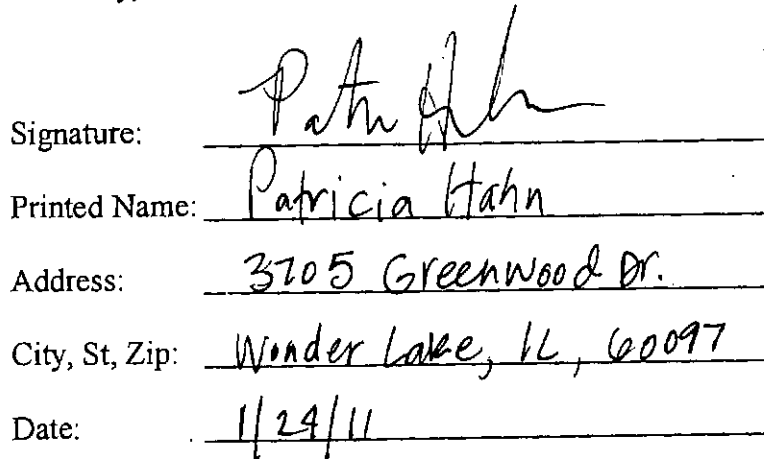 Signature:
Printed Name: Patricia Hahn
Address: 3705 Greenwood Dr.
City, St, Zip: Wonder Lake, IL, 60097
Date: 1/24/11